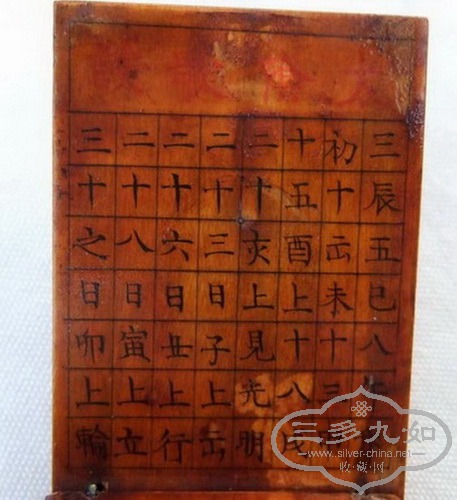 三辰五巳八午
初十出未十三
十五酉上十八戌
二十亥上見光明
二十三日子上出
二十六日丑上行
二十八日寅上立
三十之日卯上輪
三多九如
www.silver-china.net
收藏网